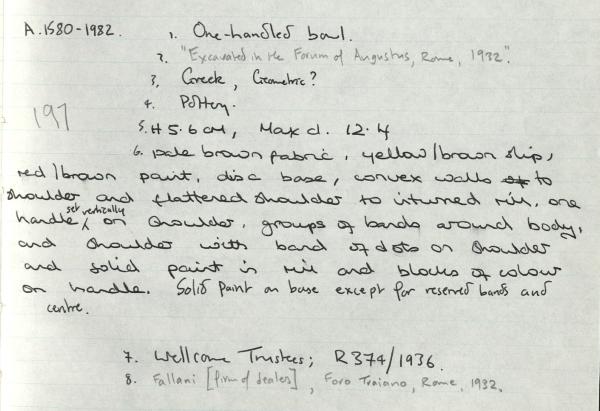 A.1580-1982. 1. One-handled bowl.
2. "Excavated in the Forum of Augustus, Rome, 1932".
3. Greek, Geometric?
197
4. Pottery.
5. H 5.6 cm, Max d. 12.4
6. pale brown fabric, yellow/brown slip,
red/brown paint, disc base, convex walls to
shoulder and flattered shoulder to inturned rim, one
handle set vertically on shoulder, groups of bands around body,
and shoulder with band of dots on shoulder
and solid paint in rim and blocks of colour
on handle. Solid paint on base except for reserved bands and
centre.
7. Wellcome Trustees; R374/1936.
8. Fallani [firm of dealers], Foro Traiano, Rome, 1932.